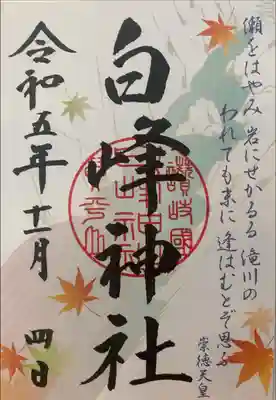 瀬をはやみ 岩にせかるる 滝川の
われても末に 逢はむとぞ思ふ
崇徳天皇
白峰神社
讃岐國
令和五年十一月 四日